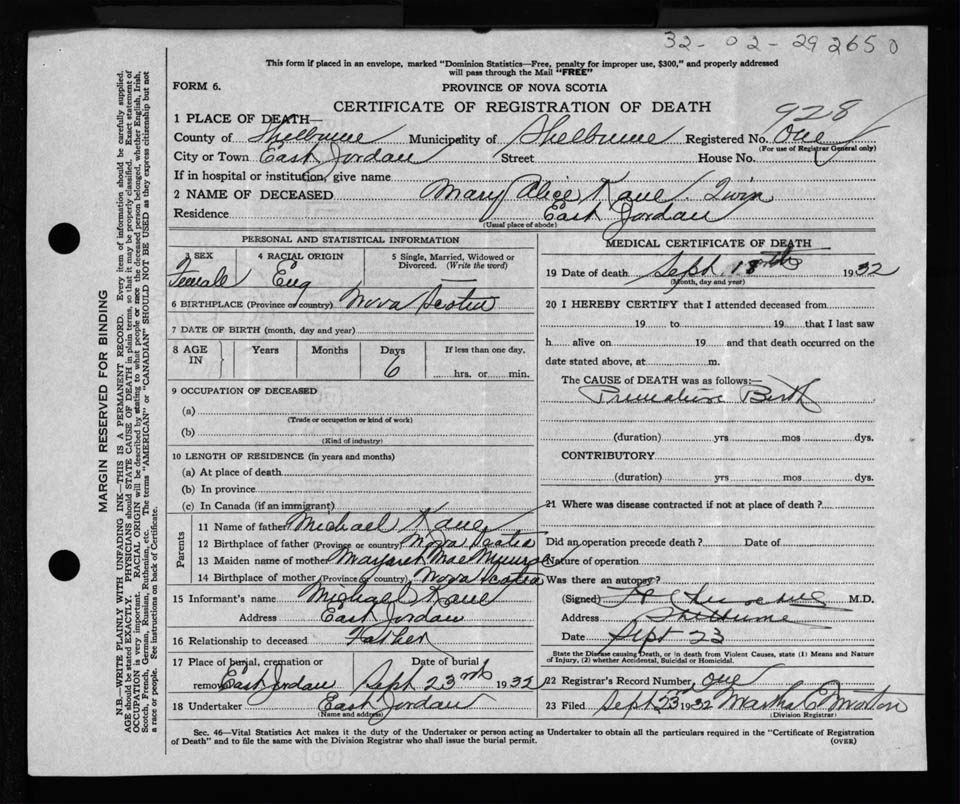 32-02-292650
This form if placed in an envelope, marked "Dominion Statistics—Free, penalty for improper use, $300," and properly addressed
will pass through the Mail "FREE"
FORM 6. PROVINCE OF NOVA SCOTIA
CERTIFICATE OF REGISTRATION OF DEATH
928
1 PLACE OF DEATH—
County of Shelburne Municipality of Shelburne Registered No. One
(For use of Registrar General only)
City or Town East Jordan Street House No.
If in hospital or institution, give name
2 NAME OF DECEASED Mary Alice Kaue. Twin
Residence East Jordan
(Usual place of abode)
PERSONAL AND STATISTICAL INFORMATION
3 SEX 4 RACIAL ORIGIN 5 Single, Married, Widowed or
Divorced. (Write the word)
Female Eng —
6 BIRTHPLACE (Province or country) Nova Scotia
7 DATE OF BIRTH (month, day and year)
8 AGE IN Years Months Days If less than one day,
6 hrs. or min.
9 OCCUPATION OF DECEASED
(a)
(Trade or occupation or kind of work)
(b)
(Kind of industry)
10 LENGTH OF RESIDENCE (in years and months)
(a) At place of death
(b) In province
(c) In Canada (if an immigrant)
Parents
11 Name of father Michael Kaue
12 Birthplace of father (Province or country) Nova Scotia
13 Maiden name of mother Margaret Mae
14 Birthplace of mother (Province or country) Nova Scotia
15 Informant's name Michael Kaue
Address East Jordan
16 Relationship to deceased Father
17 Place of burial, cremation or Date of burial
removal East Jordan Sept 23rd 1932
18 Undertaker East Jordan
(Name and address)
MEDICAL CERTIFICATE OF DEATH
19 Date of death Sept 18th 1932
(Month, day and year)
20 I HEREBY CERTIFY that I attended deceased from
19 to 19 that I last saw
h alive on 19 and that death occurred on the
date stated above, at m.
The CAUSE of DEATH was as follows:
Premature Birth
(duration) yrs mos dys.
CONTRIBUTORY
(duration) yrs mos dys.
21 Where was disease contracted if not at place of death?
Did an operation precede death? Date of
Nature of operation
Was there an autopsy?
(Signed) M.D.
Address Shelburne
Date Sept 23
State the Disease causing Death, or in death from Violent Causes, state (1) Means and Nature
of Injury, (2) whether Accidental, Suicidal or Homicidal.
22 Registrar's Record Number One
23 Filed Sept 23 1932 Martha C
(Division Registrar)
Sec. 46—Vital Statistics Act makes it the duty of the Undertaker or person acting as Undertaker to obtain all the particulars required in the "Certificate of Registration
of Death" and to file the same with the Division Registrar who shall issue the burial permit. (OVER)
MARGIN RESERVED FOR BINDING
N.B.—WRITE PLAINLY WITH UNFADING INK—THIS IS A PERMANENT RECORD. Every item of information should be carefully supplied.
AGE should be stated EXACTLY. PHYSICIANS should STATE CAUSE OF DEATH in plain terms, so that it may be properly classified. Exact statement of
OCCUPATION is very important. RACIAL ORIGIN will be described by stating to what people or race the deceased person belonged, whether English, Irish,
Scotch, French, German, Russian, Ruthenian, etc. The terms "AMERICAN" or "CANADIAN" SHOULD NOT BE USED as they express citizenship but not
a race or people. See instructions on back of Certificate.